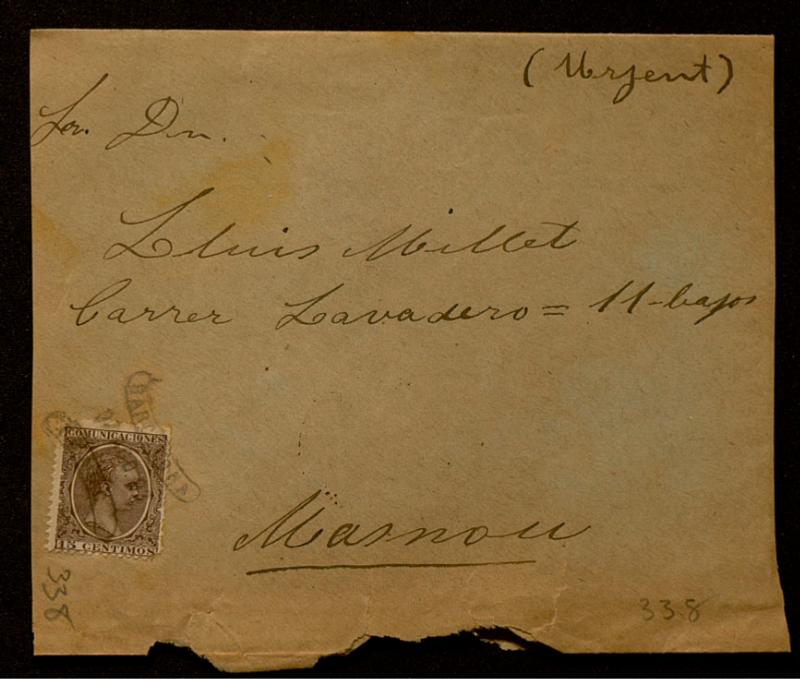 (Urjent)
Sr. Dn.
Lluis Millet
Carrer Lavadero = 11-bajos
COMUNICACIONES
15 CENTIMOS
Masnou
338
338